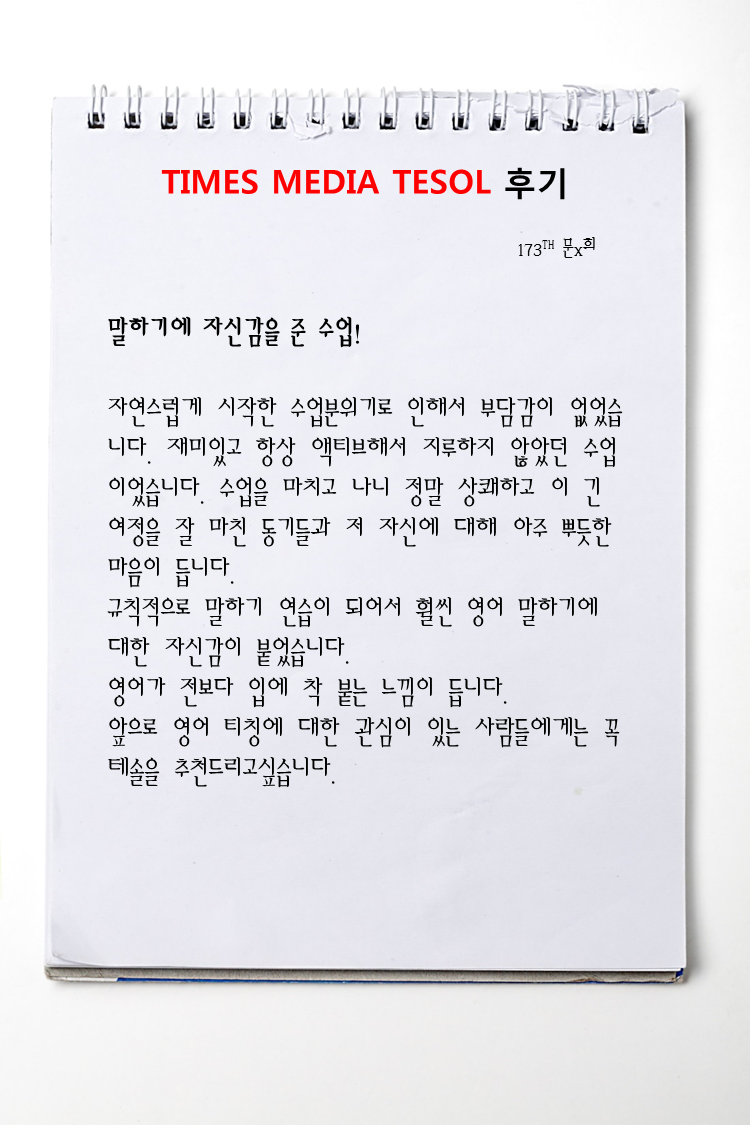 TIMES MEDIA TESOL 후기
173TH 문x희
말하기에 자신감을 준 수업!
자연스럽게 시작한 수업분위기로 인해서 부담감이 없었습
니다. 재미있고 항상 액티브해서 지루하지 않았던 수업
이었습니다. 수업을 마치고 나니 정말 상쾌하고 이 긴
여정을 잘 마친 동기들과 저 자신에 대해 아주 뿌듯한
마음이 듭니다.
규칙적으로 말하기 연습이 되어서 훨씬 영어 말하기에
대한 자신감이 붙었습니다.
영어가 전보다 입에 착 붙는 느낌이 듭니다.
앞으로 영어 티칭에 대한 관심이 있는 사람들에게는 꼭
테솔을 추천드리고싶습니다.